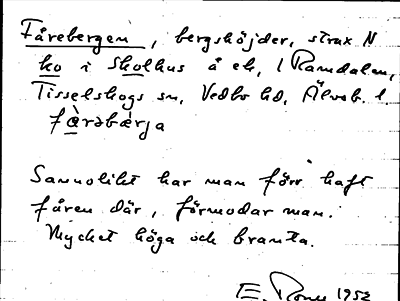 Fårebergen, bergshöjder, strax N
ho i Skolhus å ek, i Ramdalen,
Tisselskogs sn, Vedbo hd, Älvsb. l
fàrəbærja
Sannolikt har man förr haft
fåren där, förmodar man.
Mycket höga och branta.
E. 1952